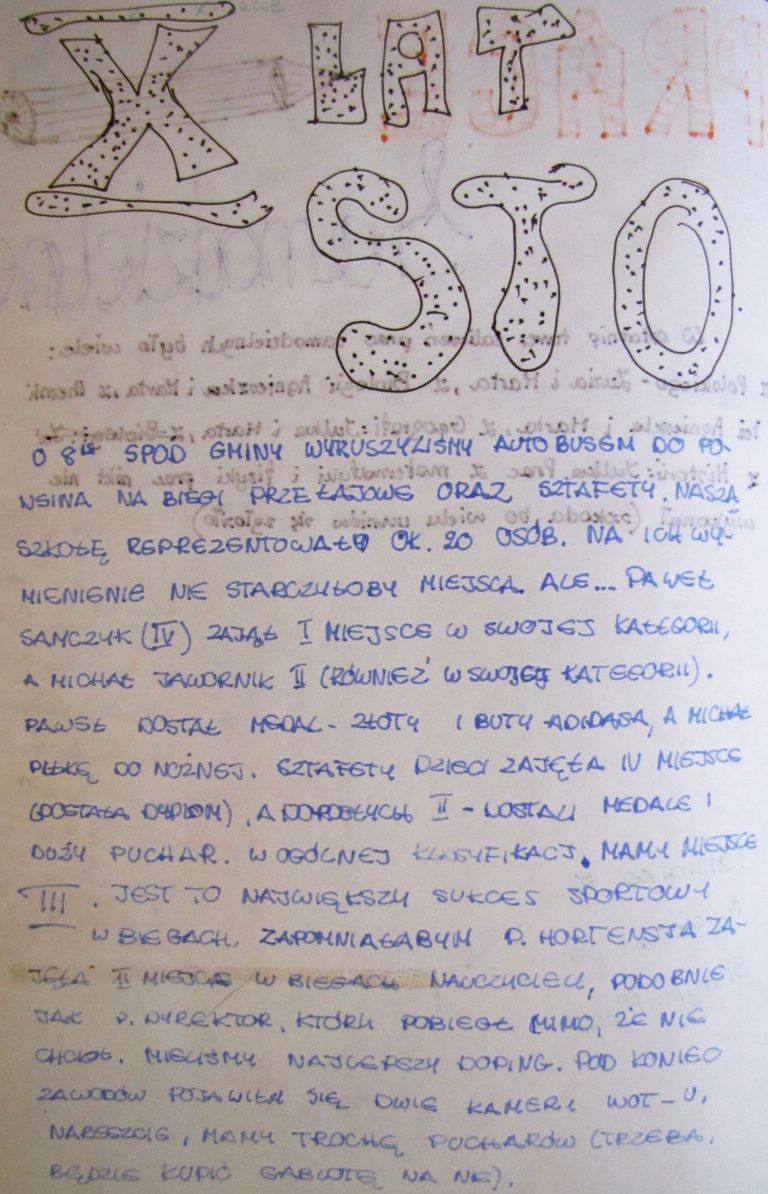 X LAT
STO
O 8¹⁵ SPOD GMINY WYRUSZYLIŚMY AUTOBUSEM DO PO-
WSINA NA BIEGI PRZEŁAJOWE ORAZ SZTAFETY. NASZĄ
SZKOŁĘ REPREZENTOWAŁO OK. 20 OSÓB. NA ICH WY-
MIENIENIE NIE STARCZYŁOBY MIEJSCA. ALE... PAWEŁ
SAMCZYK (IV) ZAJĄŁ I MIEJSCE W SWOJEJ KATEGORII,
A MICHAŁ JAWORNIK II (RÓWNIEŻ W SWOJEJ KATEGORII).
PAWEŁ DOSTAŁ MEDAL - ZŁOTY I BUTY ADIDASA, A MICHAŁ
PIŁKĘ DO NOŻNEJ. SZTAFETY DZIECI ZAJĘŁA IV MIEJSCE
(DOSTAŁA DYPLOM), A DOROSŁYCH II - DOSTALI MEDALE I
DUŻY PUCHAR. W OGÓLNEJ KLASYFIKACJ. MAMY MIEJSCE
III. JEST TO NAJWIĘKSZY SUKCES SPORTOWY
W BIEGACH. ZAPOMNIAŁABYM P. HORTENSJA ZA-
JĘŁA II MIEJSCE W BIEGACH NAUCZYCIELI, PODOBNIE
JAK P. DYREKTOR, KTÓRY POBIEGŁ MIMO, ŻE NIE
CHCIAŁ. MIELIŚMY NAJLEPSZY DOPING. POD KONIEC
ZAWODÓW POJAWIŁY SIĘ DWIE KAMERY WOT-U.
NARESZCIE, MAMY TROCHĘ PUCHARÓW (TRZEBA
BĘDZIE KUPIĆ GABLOTĘ NA NIE).